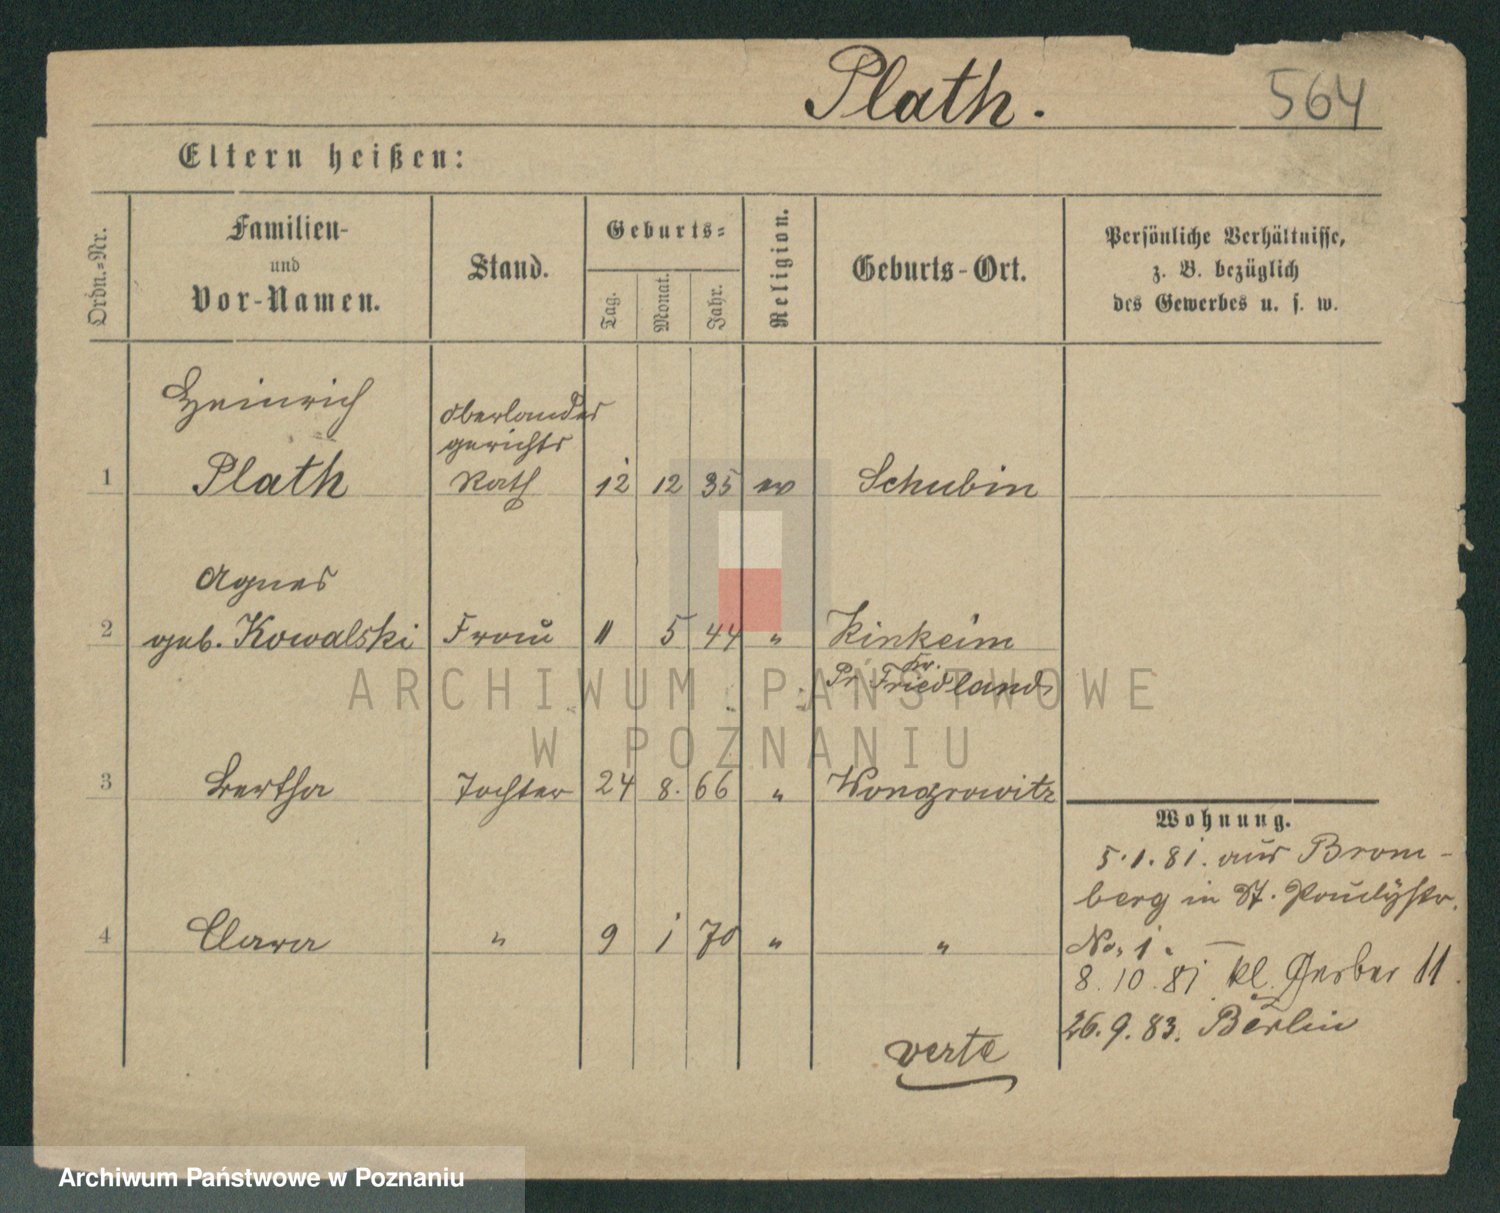 Plath. 564
Eltern heißen:
Ordn.-Nr.
Familien-
und
Vor-Namen.
Stand.
Geburts-
Tag.
Monat.
Jahr.
Religion.
Geburts-Ort.
Persönliche Verhältnisse,
z. B. bezüglich
des Gewerbes u. s. w.
Heinrich
Oberlandes
gerichts
1 Plath Rath 12 12 35 ev Schubin
Agnes
2 geb. Kowalski Frau 11 5 44 " Kinkeim
Kr.
Pr Friedland
3 Bertha Tochter 24 8. 66 " Wongrowitz
Wohnung.
5.1.81. aus Brom-
berg in St. Paulystr.
4 Clara " 9 1 70 " "
No. 1.
8.10.81 kl. Gerber 11.
26.9.83. Berlin
verte
ARCHIWUM PAŃSTWOWE
W POZNANIU
Archiwum Państwowe w Poznaniu